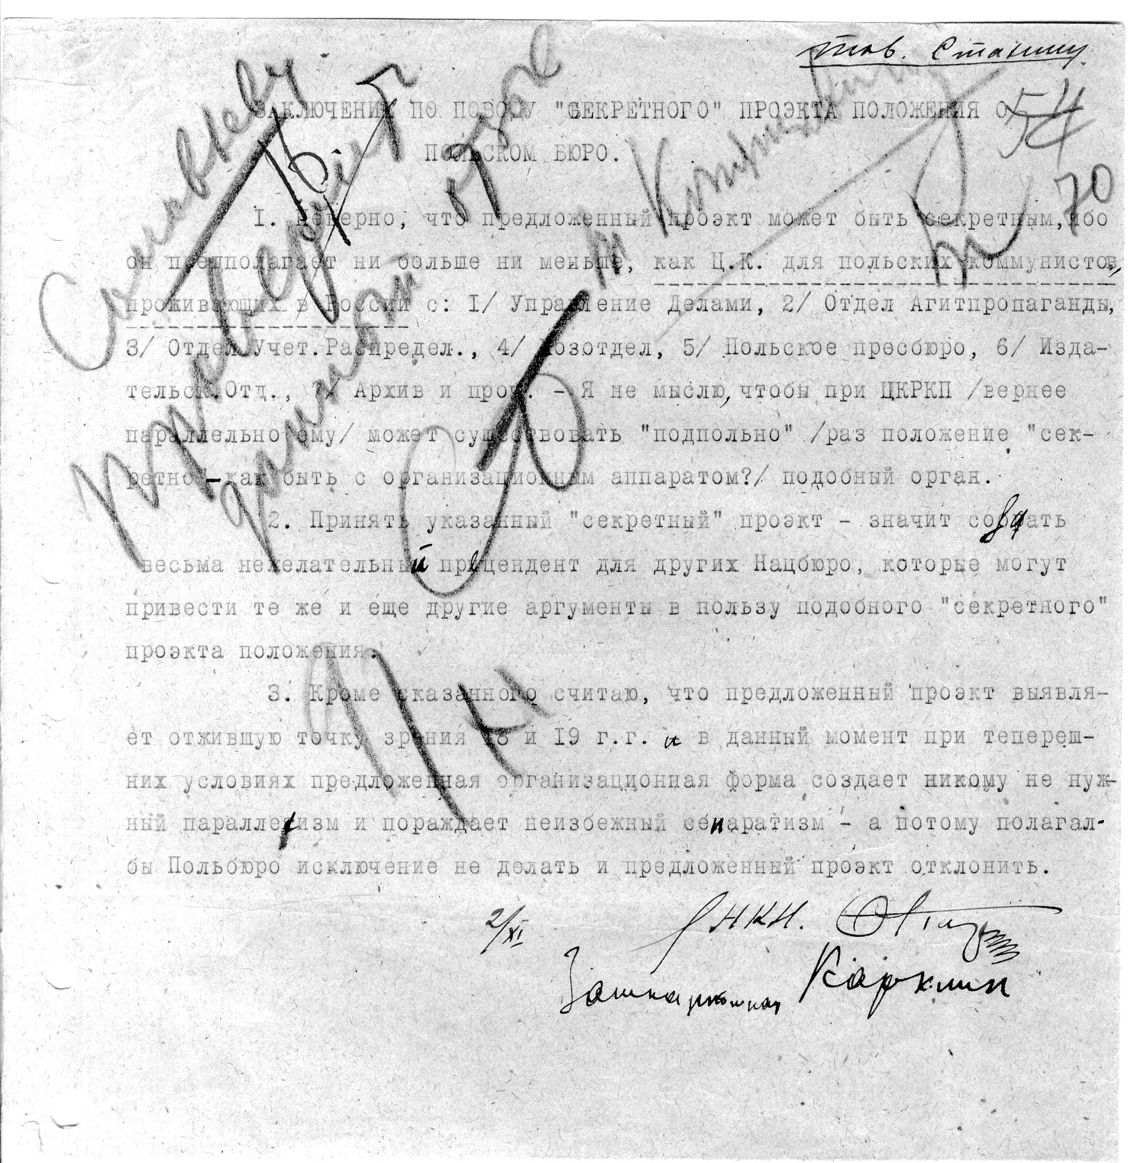 тов. Сталину.
ЗАКЛЮЧЕНИЕ ПО ПОВОДУ "СЕКРЕТНОГО" ПРОЭКТА ПОЛОЖЕНИЯ О
54
ПОЛЬСКОМ БЮРО.
70
1. Неверно, что предложенный проэкт может быть секретным, ибо
он предполагает ни больше ни меньше, как Ц.К. для польских коммунистов,
проживающих в России с: 1/ Управление Делами, 2/ Отдел Агитпропаганды,
3/ Отдел Учет.Распредел., 4/ Хозотдел, 5/ Польское пресбюро, 6/ Изда-
тельск.Отд., 7/ Архив и проч. - Я не мыслю, чтобы при ЦКРКП /вернее
параллельно ему/ может существовать "подпольно" /раз положение "сек-
ретно"-как быть с организационным аппаратом?/ подобный орган.
2. Принять указанный "секретный" проэкт - значит создать
весьма нежелательный прецендент для других Нацбюро, которые могут
привести те же и еще другие аргументы в пользу подобного "секретного"
проэкта положения.
3. Кроме сказанного считаю, что предложенный проэкт выявля-
ет отжившую точку зрения 18 и 19 г.г. и в данный момент при тепереш-
них условиях предложенная организационная форма создает никому не нуж-
ный параллелизм и пораждает неизбежный сепаратизм - а потому полагал-
бы Польбюро исключение не делать и предложенный проэкт отклонить.
2/XI
Карклин